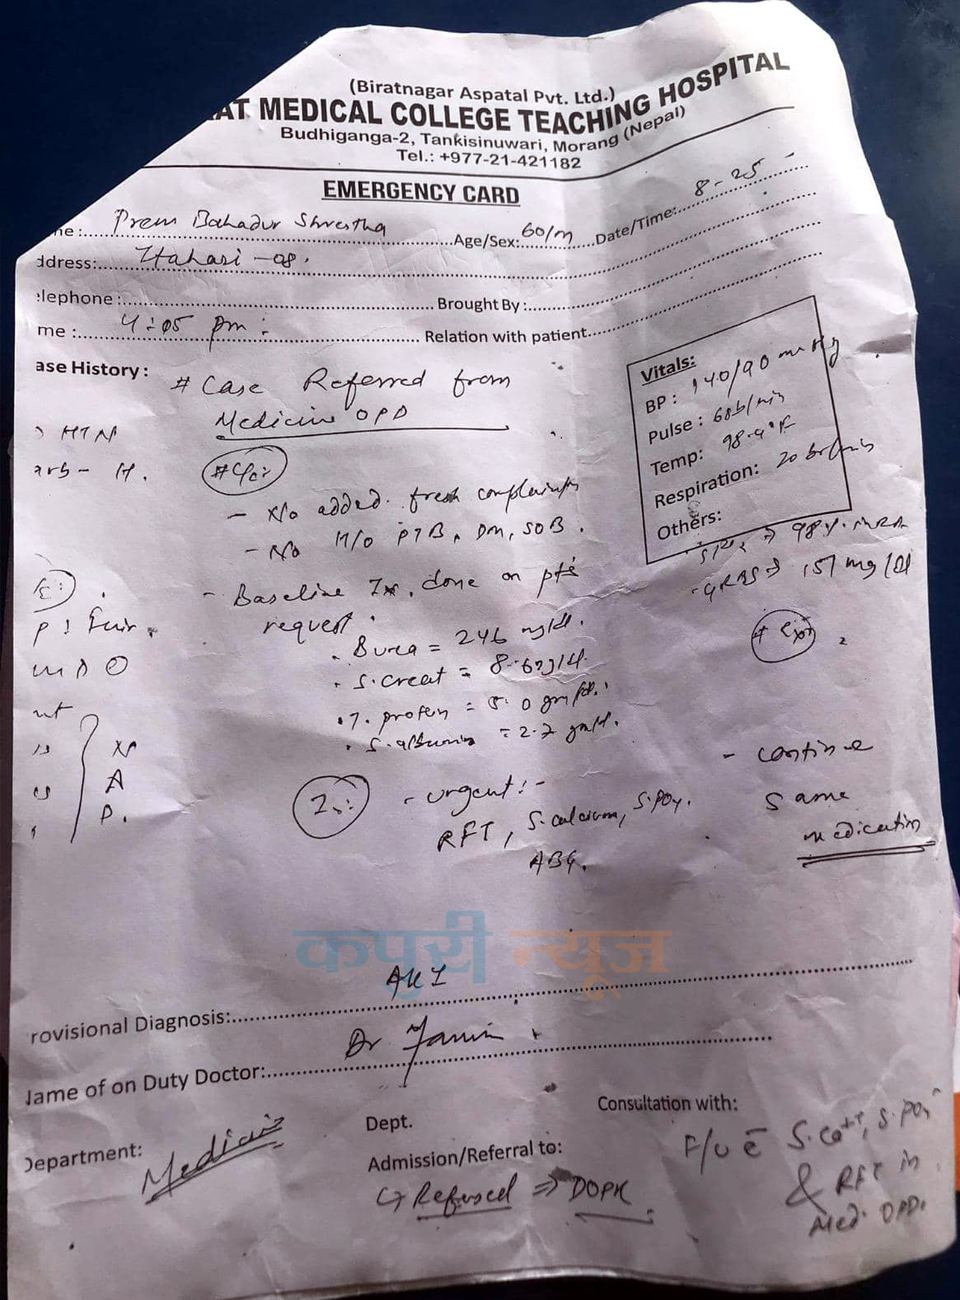 (Biratnagar Aspatal Pvt. Ltd.)
AT MEDICAL COLLEGE TEACHING HOSPITAL
Budhiganga-2, Tankisinuwari, Morang (Nepal)
Tel.: +977-21-421182
EMERGENCY CARD
me: Prem Bahadur Shrestha Age/Sex: 60/m Date/Time: 8-25
ddress: Itahari-08.
elephone: Brought By:
me: 4:05 pm: Relation with patient
ase History:
# Case Referred from
Medicine OPD
HTN
# C/o:
- No added fresh complaints
- No H/o PTB, DM, SOB.
- Baseline Ix. done on pts
request.
. B urea = 246 mg/dl.
. S. creat =
. T. protein =
. S. albumin = 2.7 gm/dl.
Vitals:
BP: 140/90 mmHg
Pulse: 68b/min
Temp: 98.4°F
Respiration: 20 br/min
Others:
98%
- GRBS → 151 mg/dl
P: Fair.
A
P.
- continue
Same
medication
- Urgent:-
RFT, S. calcium, S. PO4.
ABG.
कपुरी न्यूज
rovisional Diagnosis: AKI
Name of on Duty Doctor: Dr
Department: Medicine
Dept.
Admission/Referral to:
↳ Refused ⇒ DOPR
Consultation with:
F/U c̄ S. Ca++, S. PO4
& RFT in
Med. OPD.